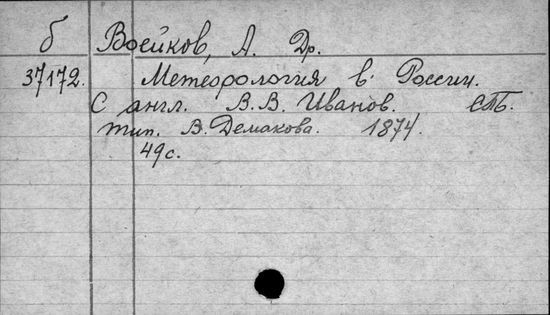 б Воейков, А. Др.
37172. Метеорология в России.
С англ. В.В. Иванов. СПб.
тип. В. Демакова. 1874.
49 с.